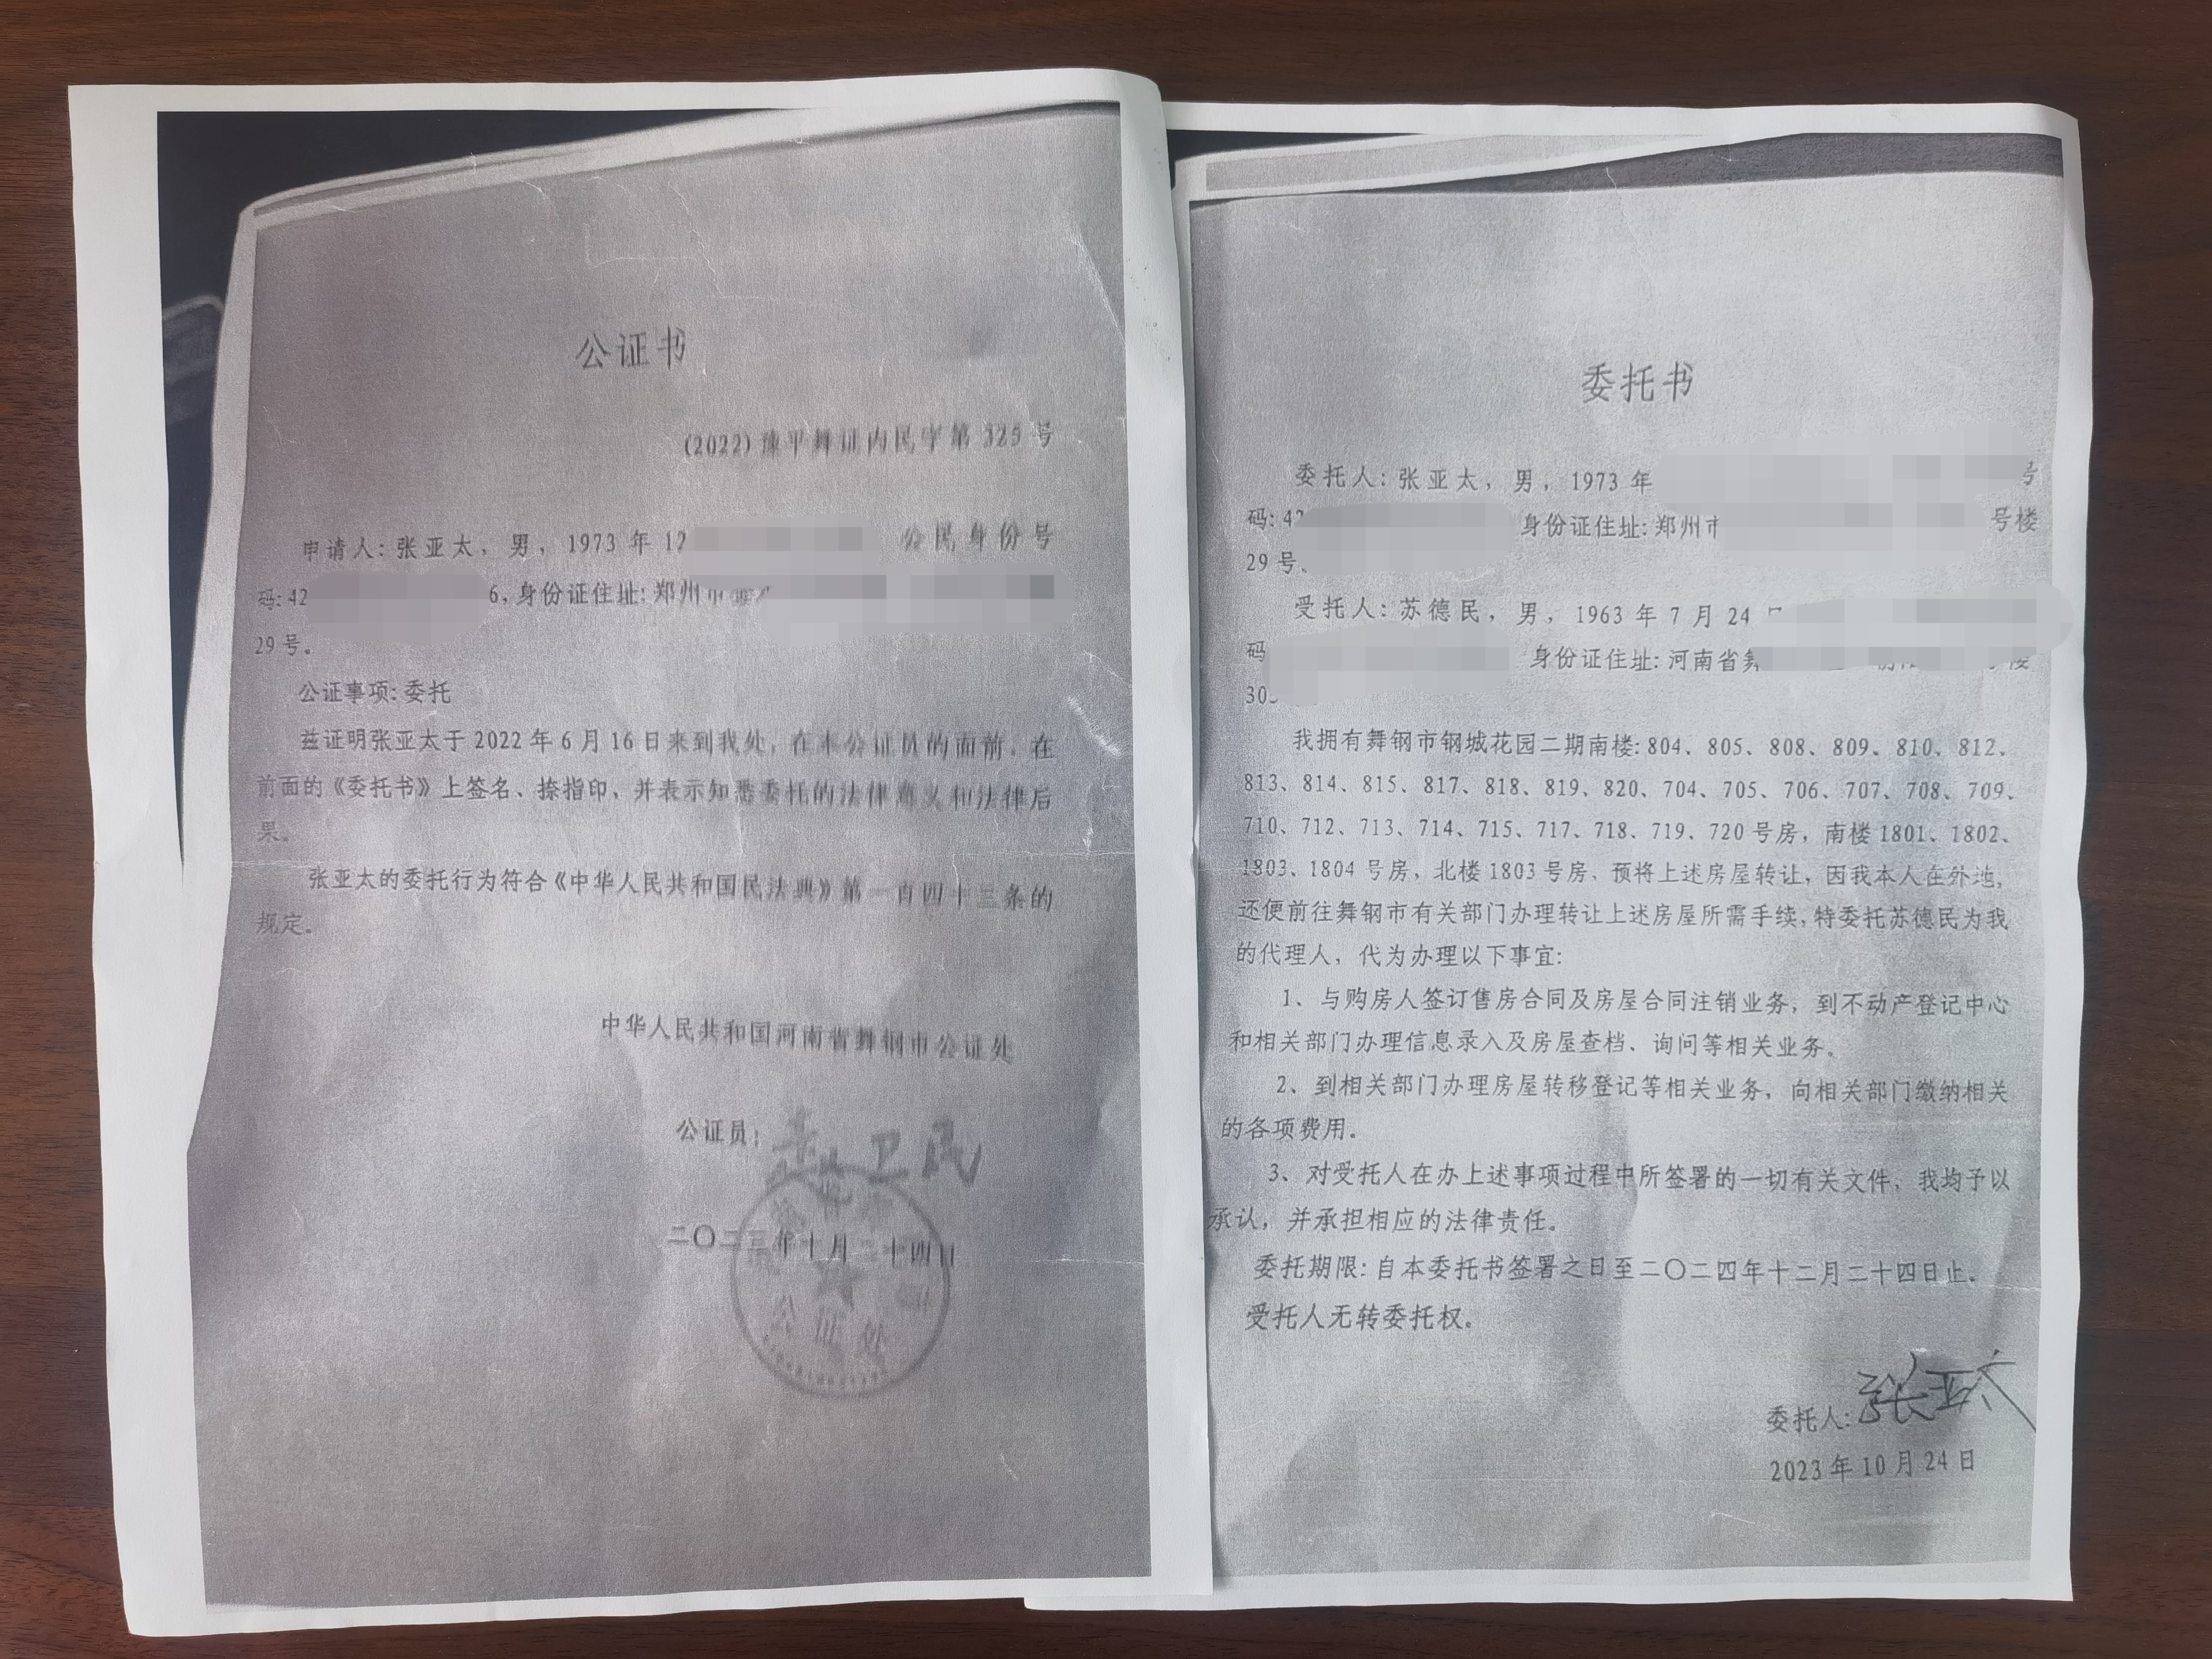 公证书
(2022)豫平舞证内民字第325号
申请人:张亚太，男，1973年12 公民身份号
码:42 6,身份证住址:郑州市
29号。
公证事项:委托
兹证明张亚太于2022年6月16日来到我处，在本公证员的面前，在
前面的《委托书》上签名、捺指印，并表示知悉委托的法律意义和法律后
果。
张亚太的委托行为符合《中华人民共和国民法典》第一百四十三条的
规定。
中华人民共和国河南省舞钢市公证处
公证员: 卫民
二〇二三年十月二十四日
公证处
委托书
委托人:张亚太，男，1973年 号
码:42 身份证住址:郑州市 号楼
29号、
受托人:苏德民，男，1963年7月24
码 身份证住址:河南省舞 楼
30
我拥有舞钢市钢城花园二期南楼:804、805、808、809、810、812、
813、814、815、817、818、819、820、704、705、706、707、708、709、
710、712、713、714、715、717、718、719、720号房，南楼1801、1802、
1803、1804号房，北楼1803号房、预将上述房屋转让，因我本人在外地，
还便前往舞钢市有关部门办理转让上述房屋所需手续,特委托苏德民为我
的代理人，代为办理以下事宜:
1、与购房人签订售房合同及房屋合同注销业务，到不动产登记中心
和相关部门办理信息录入及房屋查档、询问等相关业务。
2、到相关部门办理房屋转移登记等相关业务，向相关部门缴纳相关
的各项费用。
3、对受托人在办上述事项过程中所签署的一切有关文件，我均予以
承认，并承担相应的法律责任。
委托期限:自本委托书签署之日至二〇二四年十二月二十四日止。
受托人无转委托权。
委托人:张亚太
2023年10月24日